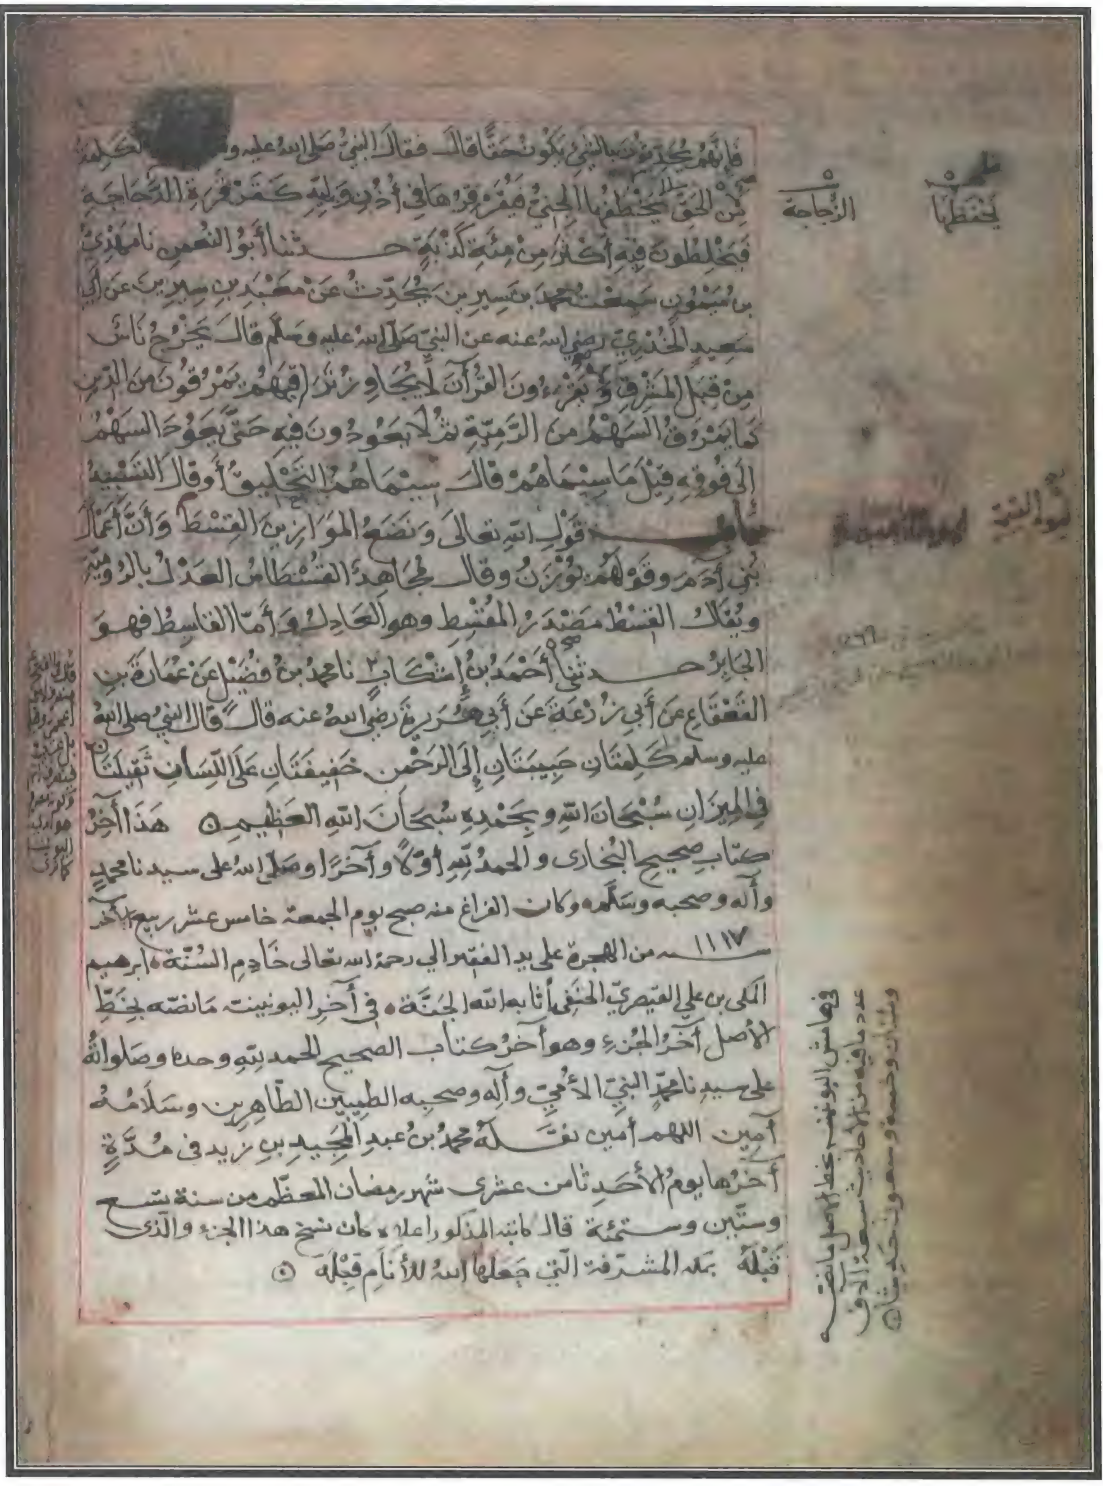 فَإِنَّهُمْ يُحَدِّثُونَ بِالشَّيْءِ يَكُونُ حَقًّا قالَ فقالَ النبيُّ صلى اللهُ عليه وسلم الكَلِمَةُ
مِنَ الحَقِّ يَخْطَفُهَا الجِنِّيُّ فَيُقَرْقِرُهَا في أُذُنِ وَلِيِّهِ كَقَرْقَرَةِ الدَّجَاجَةِ
فَيَخْلِطُونَ فِيهِ أَكْثَرَ مِنْ مِئَةِ كَذْبَةٍ حدثنا أَبُو النعمنِ نا مَهْدِيُّ
بن مَيْمُونٍ سَمِعْتُ محمدَ بنَ سِيرِينَ يُحَدِّثُ عَنْ مَعْبَدِ بنِ سِيرِينَ عَنْ أَبِي
سَعِيدٍ الخُدْرِيِّ رضي اللهُ عنه عن النبيِّ صَلَّى اللهُ عليه وسلَّم قالَ يَخْرُجُ نَاسٌ
مِنْ قِبَلِ المَشْرِقِ وَيَقْرَءُونَ القُرْآنَ لَا يُجَاوِزُ تَرَاقِيَهُمْ يَمْرُقُونَ مِنَ الدِّينِ
كما يَمْرُقُ السَّهْمُ مِنَ الرَّمِيَّةِ ثُمَّ لَا يَعُودُونَ فِيهِ حَتَّى يَعُودَ السَهْمُ
إِلَى فُوقِهِ قِيْلَ مَا سِيْمَاهُمْ قالَ سِيْمَاهُمُ التَّحْلِيقُ أَوقالَ التَّسْبِيدُ
باب قَوْلِ اللهِ تعالَى وَنَضَعُ المَوَازِينَ القِسْطَ وَأَنَّ أَعْمَالَ
بَنِي آدَمَ وَقَوْلَهُمْ يُوْزَنُ وقالَ مُجَاهِدٌ القُسْطَاسُ العَدْلُ بالرُّومِيَّةِ
ويُقَالُ القِسْطُ مَصْدَرُ المُقْسِطِ وهو العَادِلُ وَأَمَّا القَاسِطُ فهو
الجَائِرُ حدثني أَحْمَدُ بنُ إِشْكَابٍ نا محمدُ بنُ فُضَيْلٍ عَنْ عُمَارَةَ بنِ
القَعْقَاعِ عَنْ أَبِي زُرْعَةَ عَنْ أَبِي هُرَيرةَ رَضِيَ اللهُ عنه قالَ قالَ النبيُّ صلى اللهُ
عليه وسلم كَلِمَتَانِ حَبِيبَتَانِ إِلَى الرَّحْمنِ خَفِيفَتَانِ عَلَى اللِّسَانِ ثَقِيلَتَانِ
فِي المِيزَانِ سُبْحَانَ اللهِ وَبِحَمْدِهِ سُبْحَانَ اللهِ العَظِيمِ هَذَا آخِرُ
كتابِ صحيحِ البُخَارى والحمدُ للهِ أوَّلاً وآخرًا وصَلَّى اللهُ على سيدنا محمدٍ
وآله وصحبه وسَلَّم وكان الفراغ منه صبح يوم الجمعة خامس عشر ربيع الآخر
سنة ١١١٧ من الهجرة على يد الفقير الي رحمة الله تعالى خَادِمِ السُنَّة ابرهيم
المكى بن علي القيصريّ الحنفى أثابه الله الجَنَّة في آخر اليونينية مَا نصّه بخَطِّ
الأصل آخرُ الجُزءِ وهو آخرُ كتاب الصحيح الحمد للهِ وحده وصَلَواتُهُ
على سيدِنا محمّدٍ النبيّ الأُمّيّ وآلِه وصحبِه الطيِّبين الطَّاهِرين وسَلَامُهُ
آمين اللهم آمين نقَلَهُ محمدُ بنُ عبدِ المَجِيدِ بنِ زيد في مُدَّةٍ
آخرُها يوم الأحَدِ ثامن عشرى شهر رمضان المعظّم من سنة تسع
وستّين وستمئة قال كاتبه المذكور اعلاه كان نسخ هذا الجزء والّذى
قَبْلَهُ بمكه المشرّفة الّتي جَعَلها اللهُ للأنَامِ قِبْلَة
يَحْفَظُهَا
الزُّجَاجة
ليوم القيمة
في هامش اليونينيه بخط الاصل ما نصّه
عدد ما فيه من الاحاديث سبعة الاف
ومئتان وخمسة وسبعون حديثا